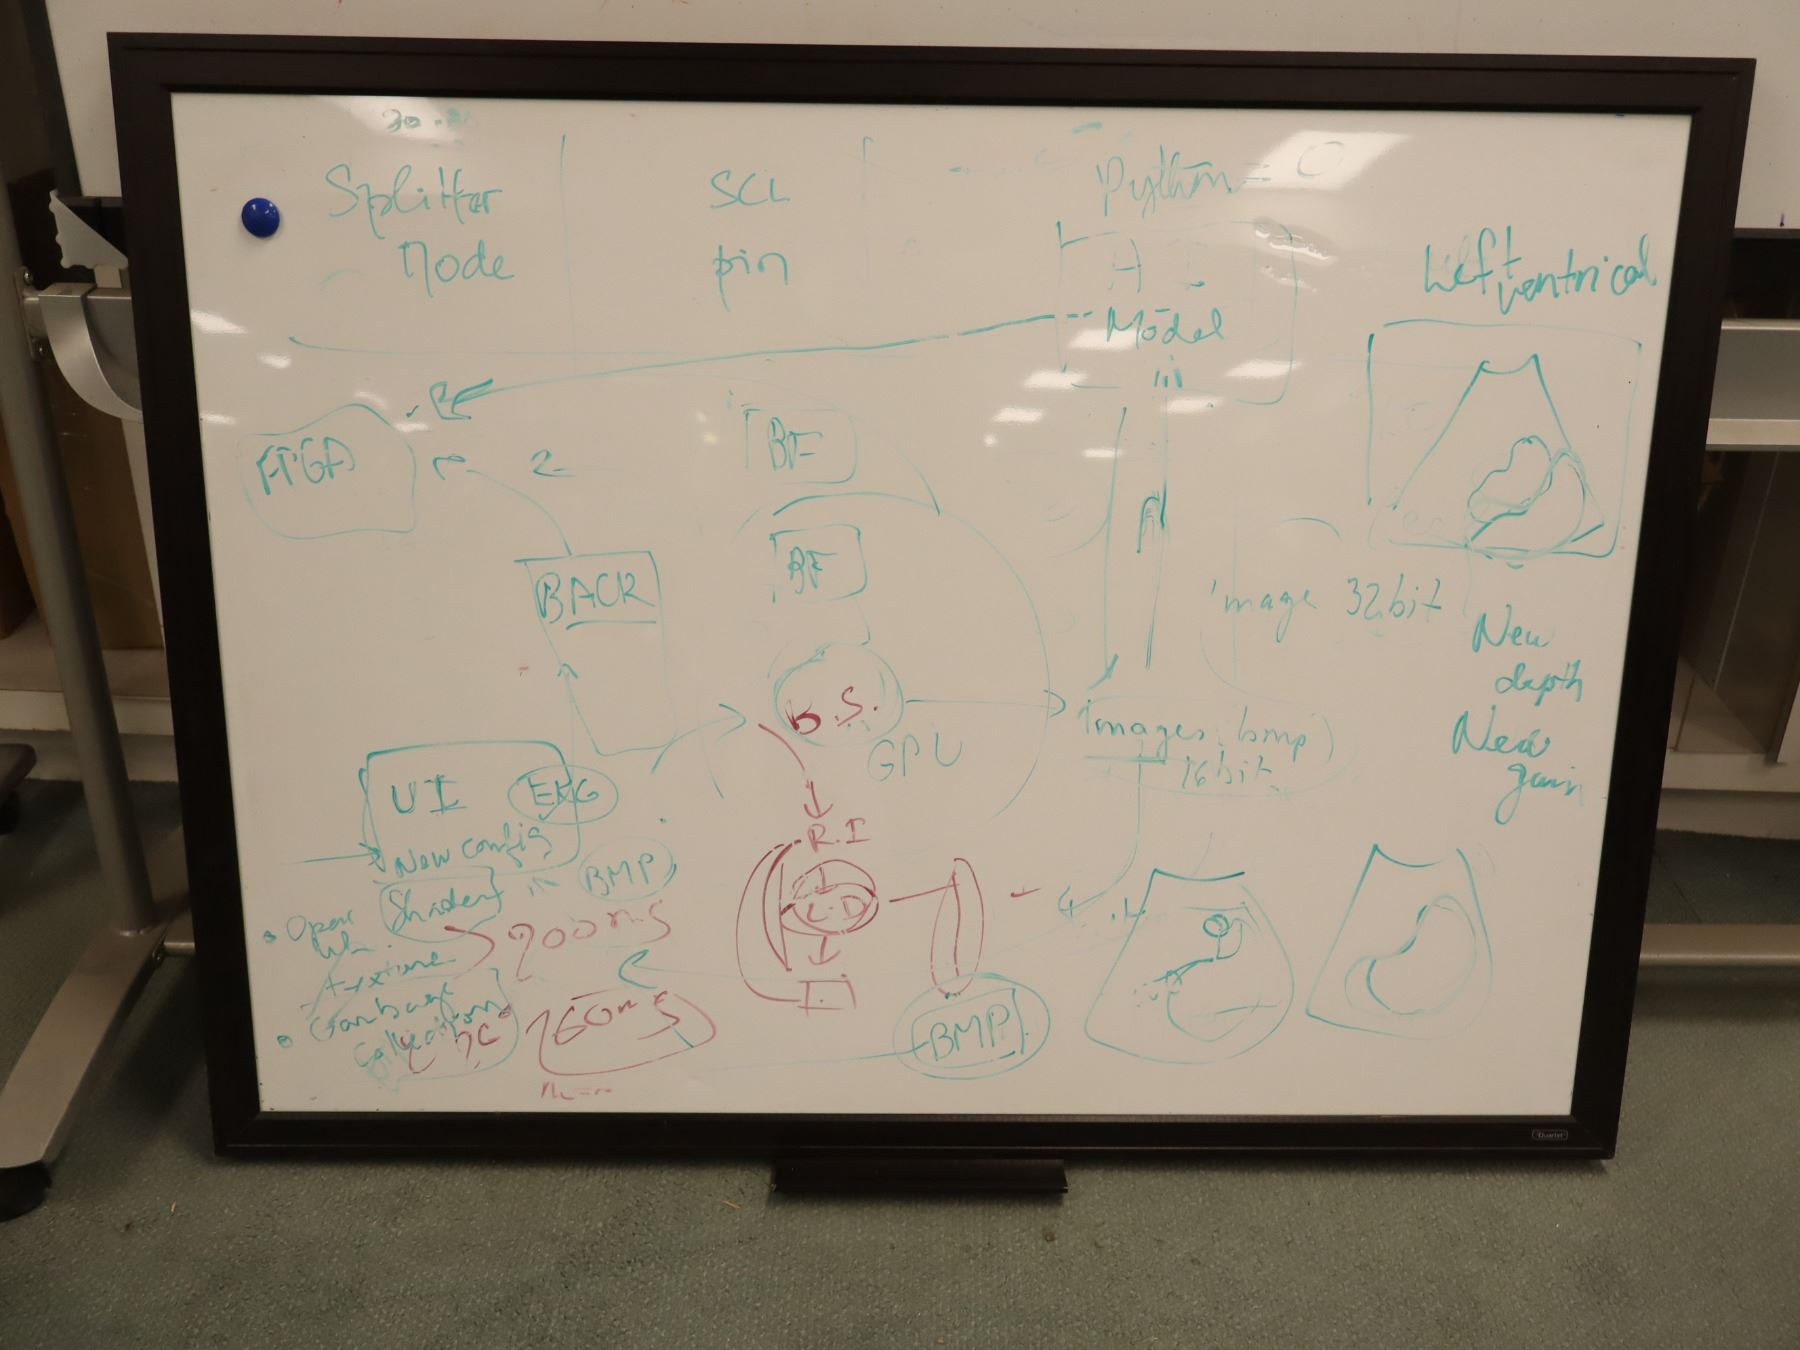 Splitter
Node
SCL
pin
Python
AI
Model
Left
ventrical
FPGA
2
BF
BF
BACK
image 32bit
New
depth
New
gain
B.S.
GPU
images.bmp
16bit
UI
EKG
New config
in
BMP
Shader
Open
900ms
R.I
L.D
texture
Garbage
collection
760ms
BMP
Quartet